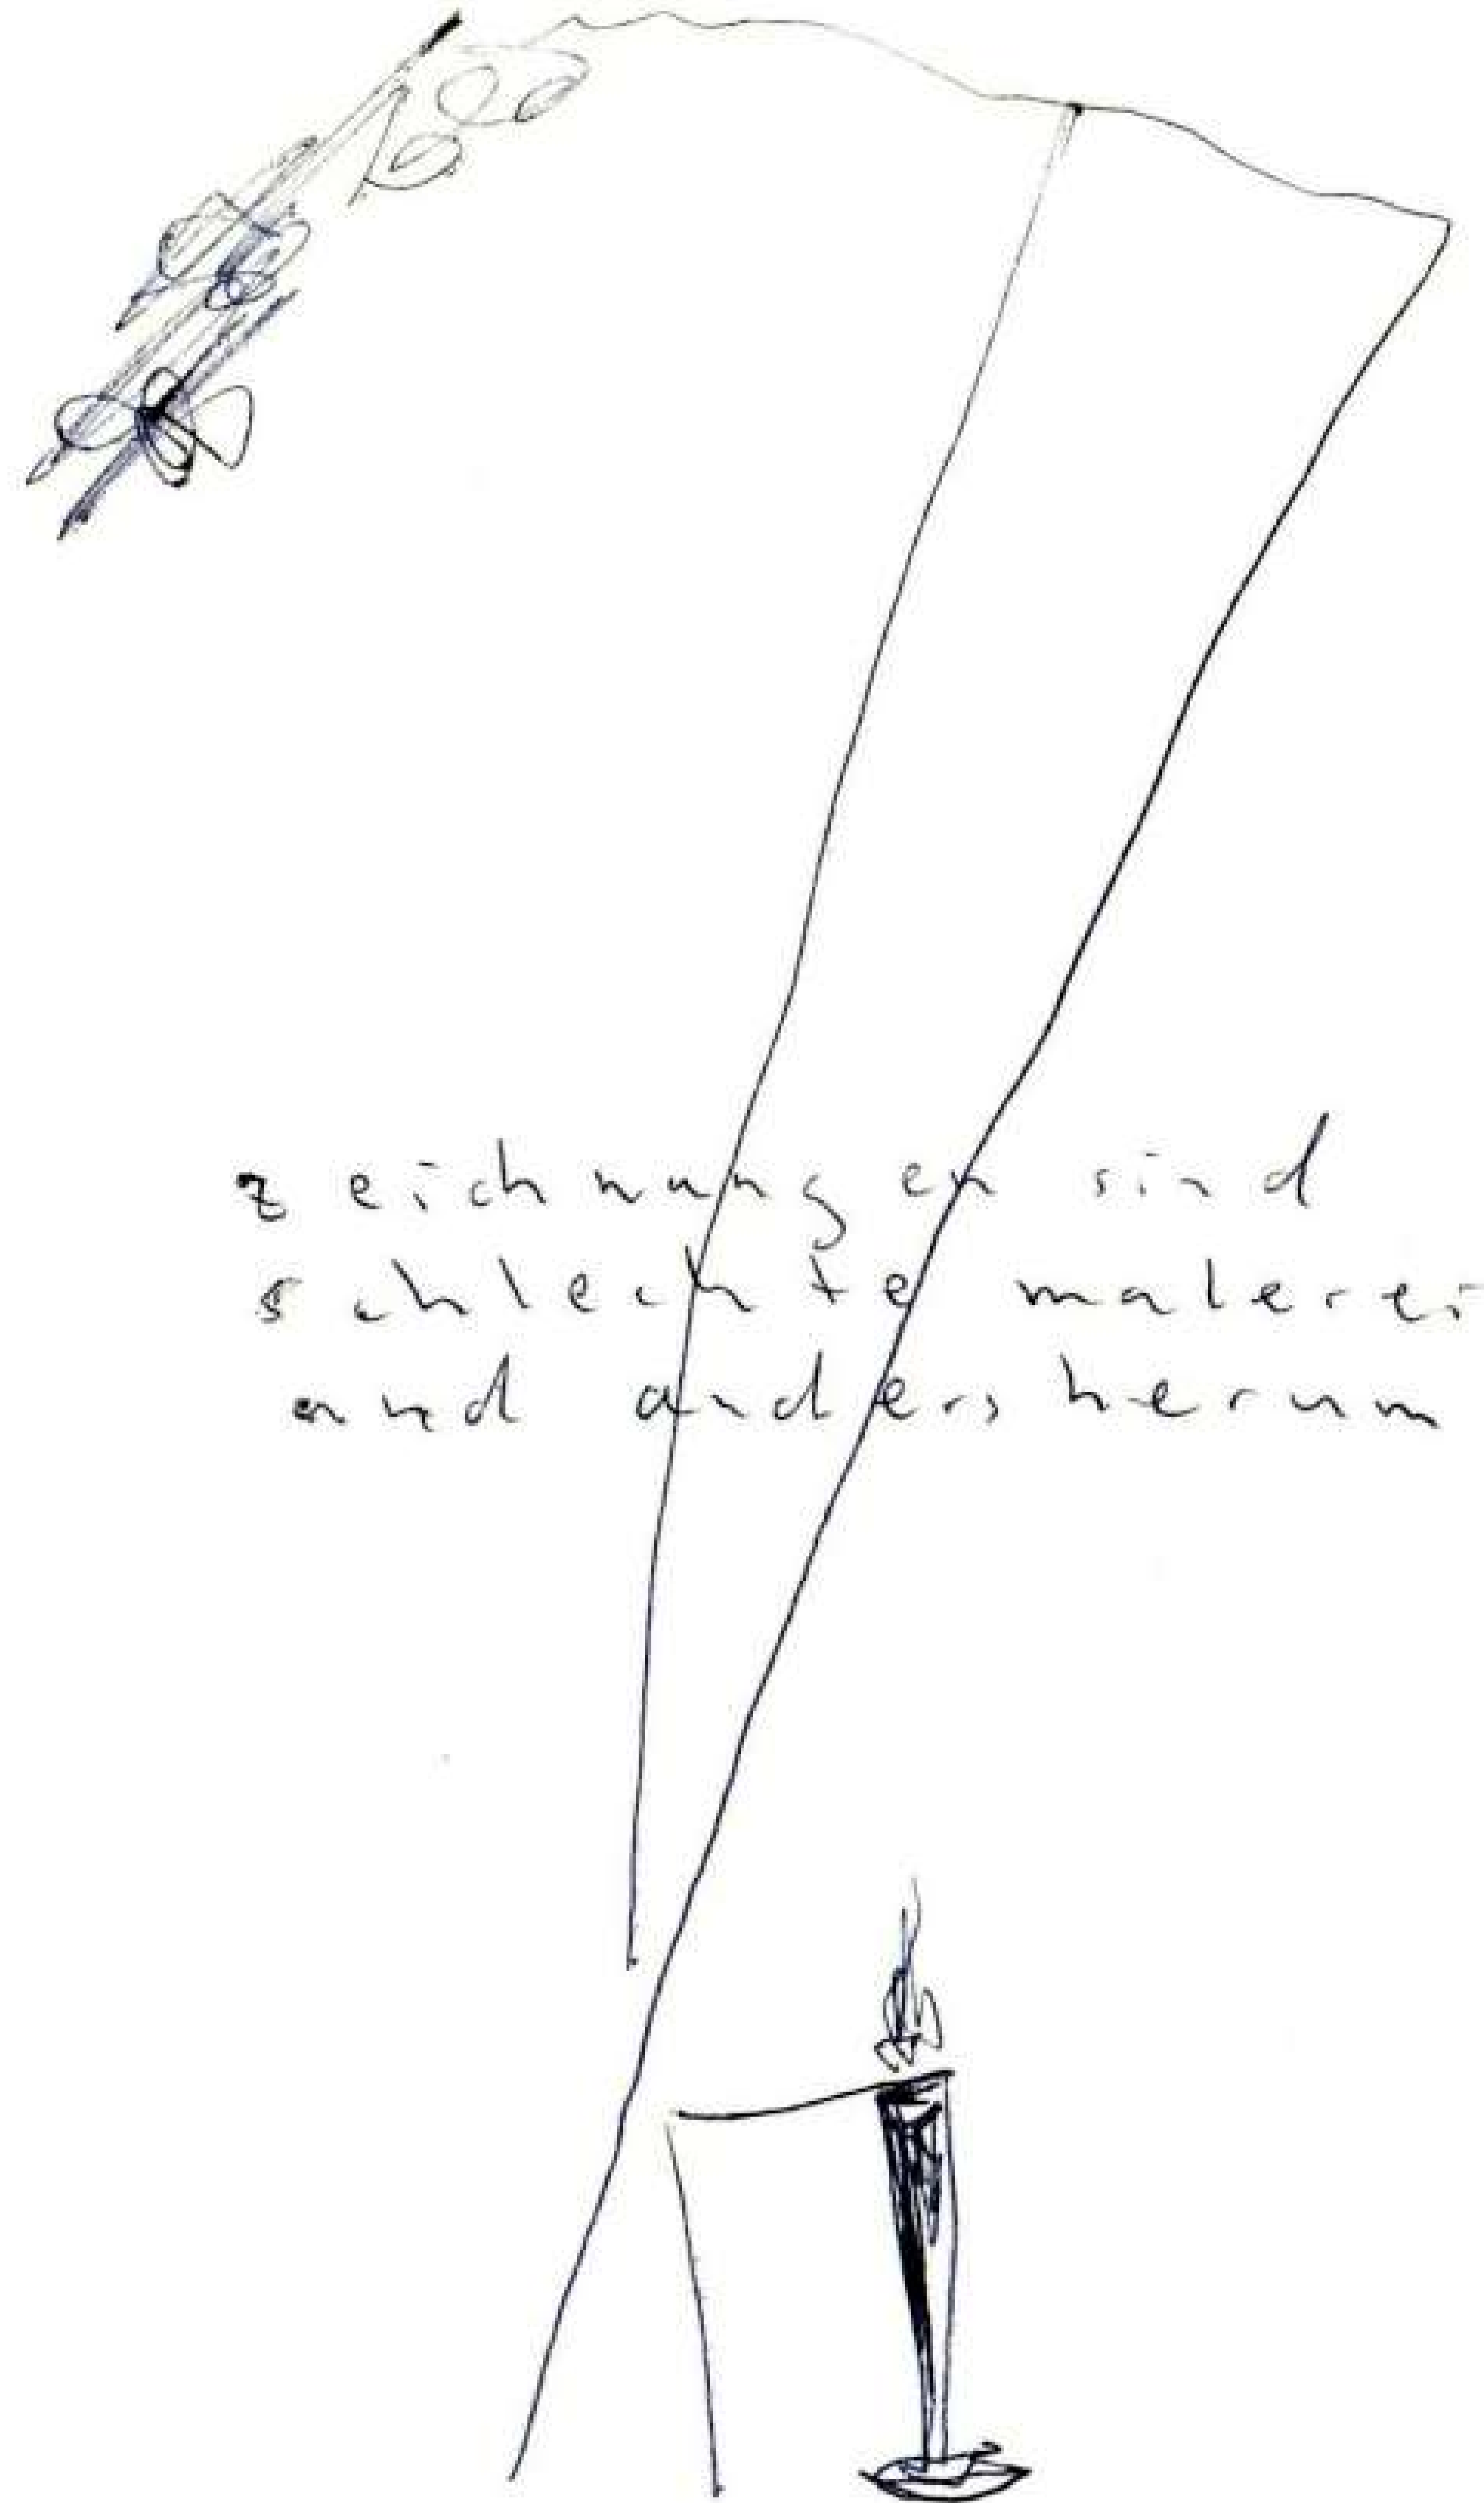 zeichnungen sind
schlechte malerei
und andersherum